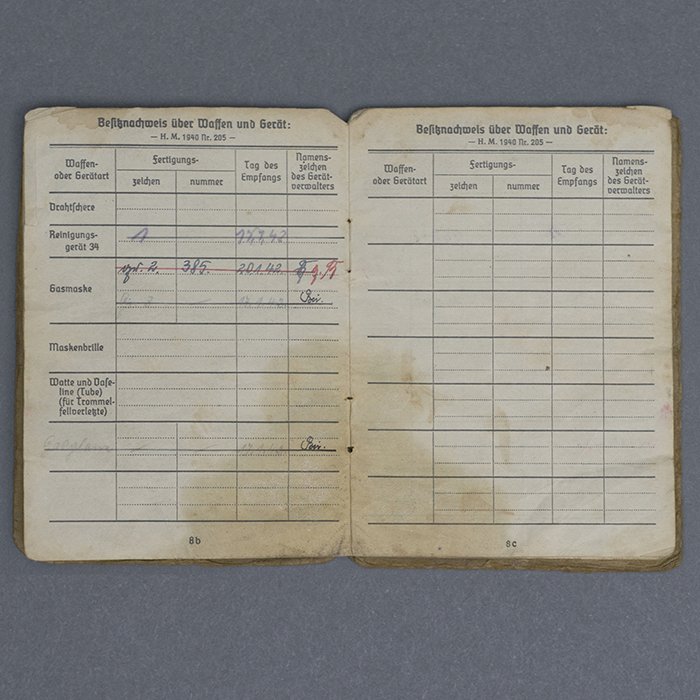 Besitznachweis über Waffen und Gerät:
— H. M. 1940 Nr. 205 —
Waffen-
oder Gerätart
Fertigungs-
zeichen
nummer
Tag des
Empfangs
Namens-
zeichen
des Gerät-
verwalters
Drahtschere
Reinigungs-
gerät 34
1
Gasmaske
gr. 2. 385. 20.1.42.
Maskenbrille
Watte und Vase-
line (Tube)
(für Trommel-
fellverletzte)
8b
Besitznachweis über Waffen und Gerät:
— H. M. 1940 Nr. 205 —
Waffen-
oder Gerätart
Fertigungs-
zeichen
nummer
Tag des
Empfangs
Namens-
zeichen
des Gerät-
verwalters
8c